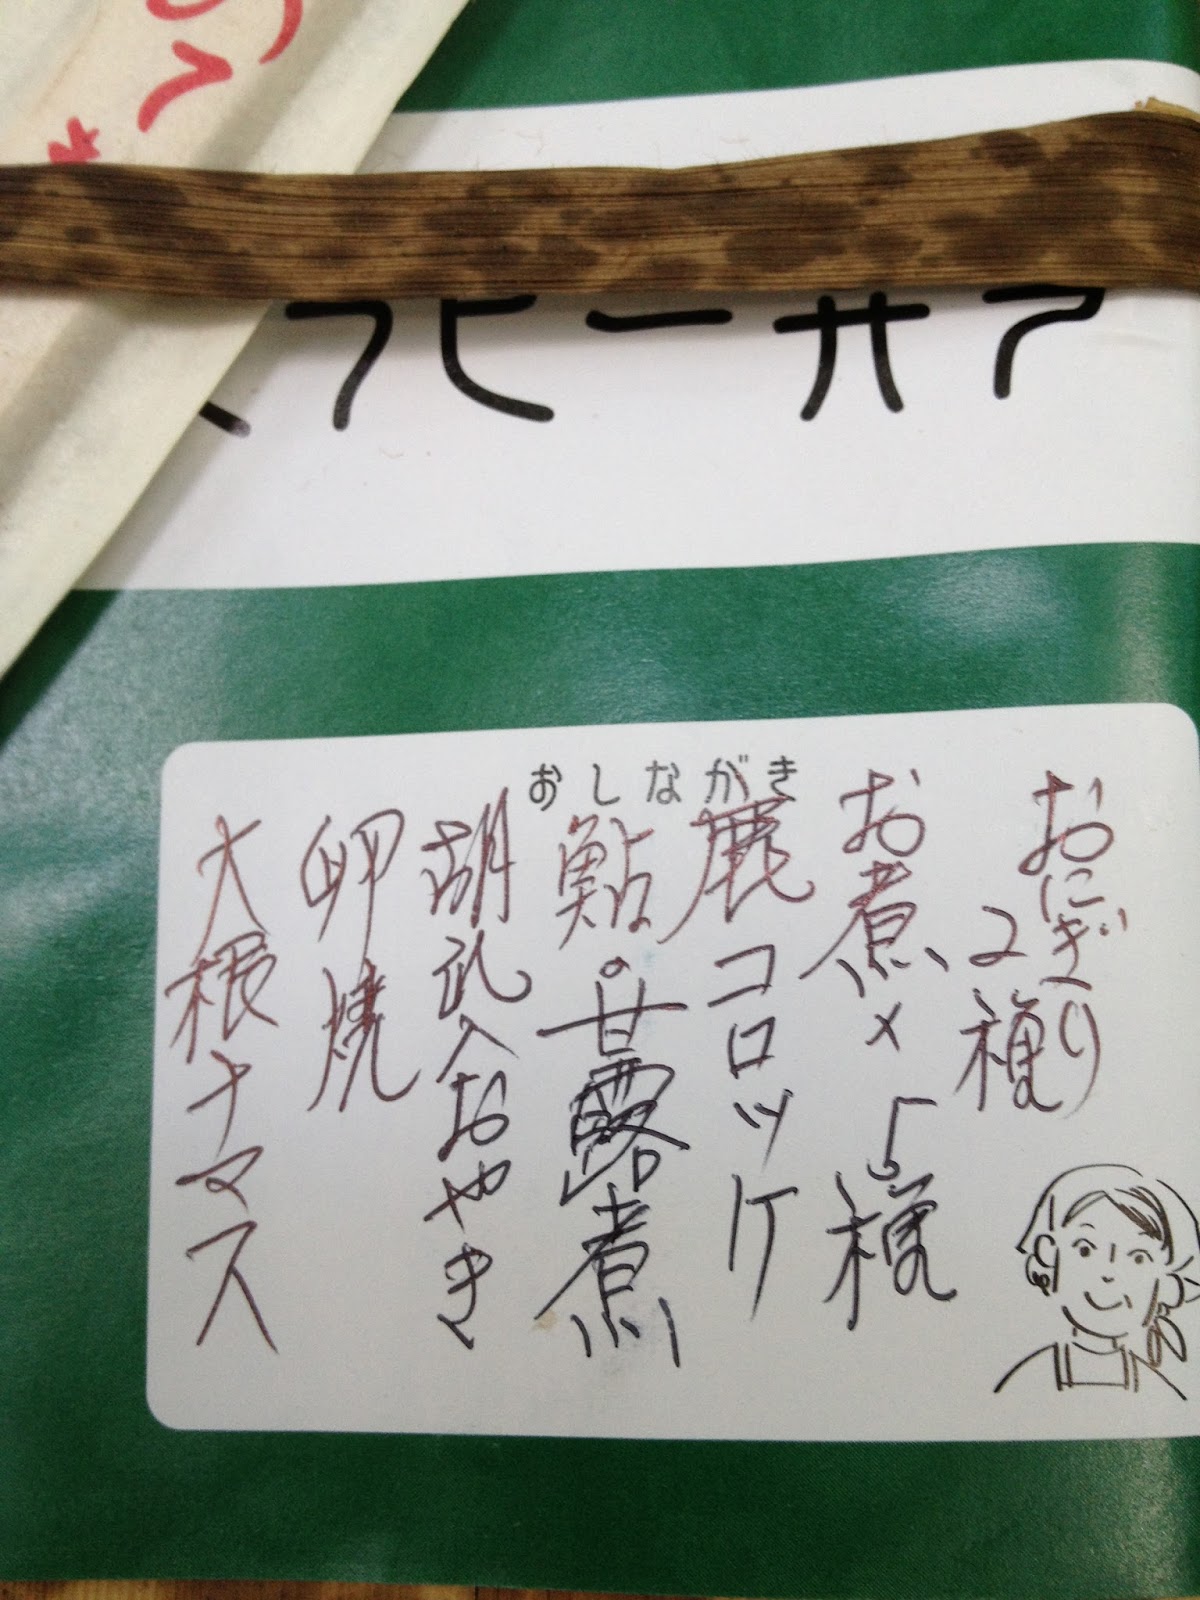 おしながき
おにぎり
2種
お煮〆 5種
鹿コロッケ
鮎の甘露煮
胡瓜入おやき
卵焼
大根ナマス